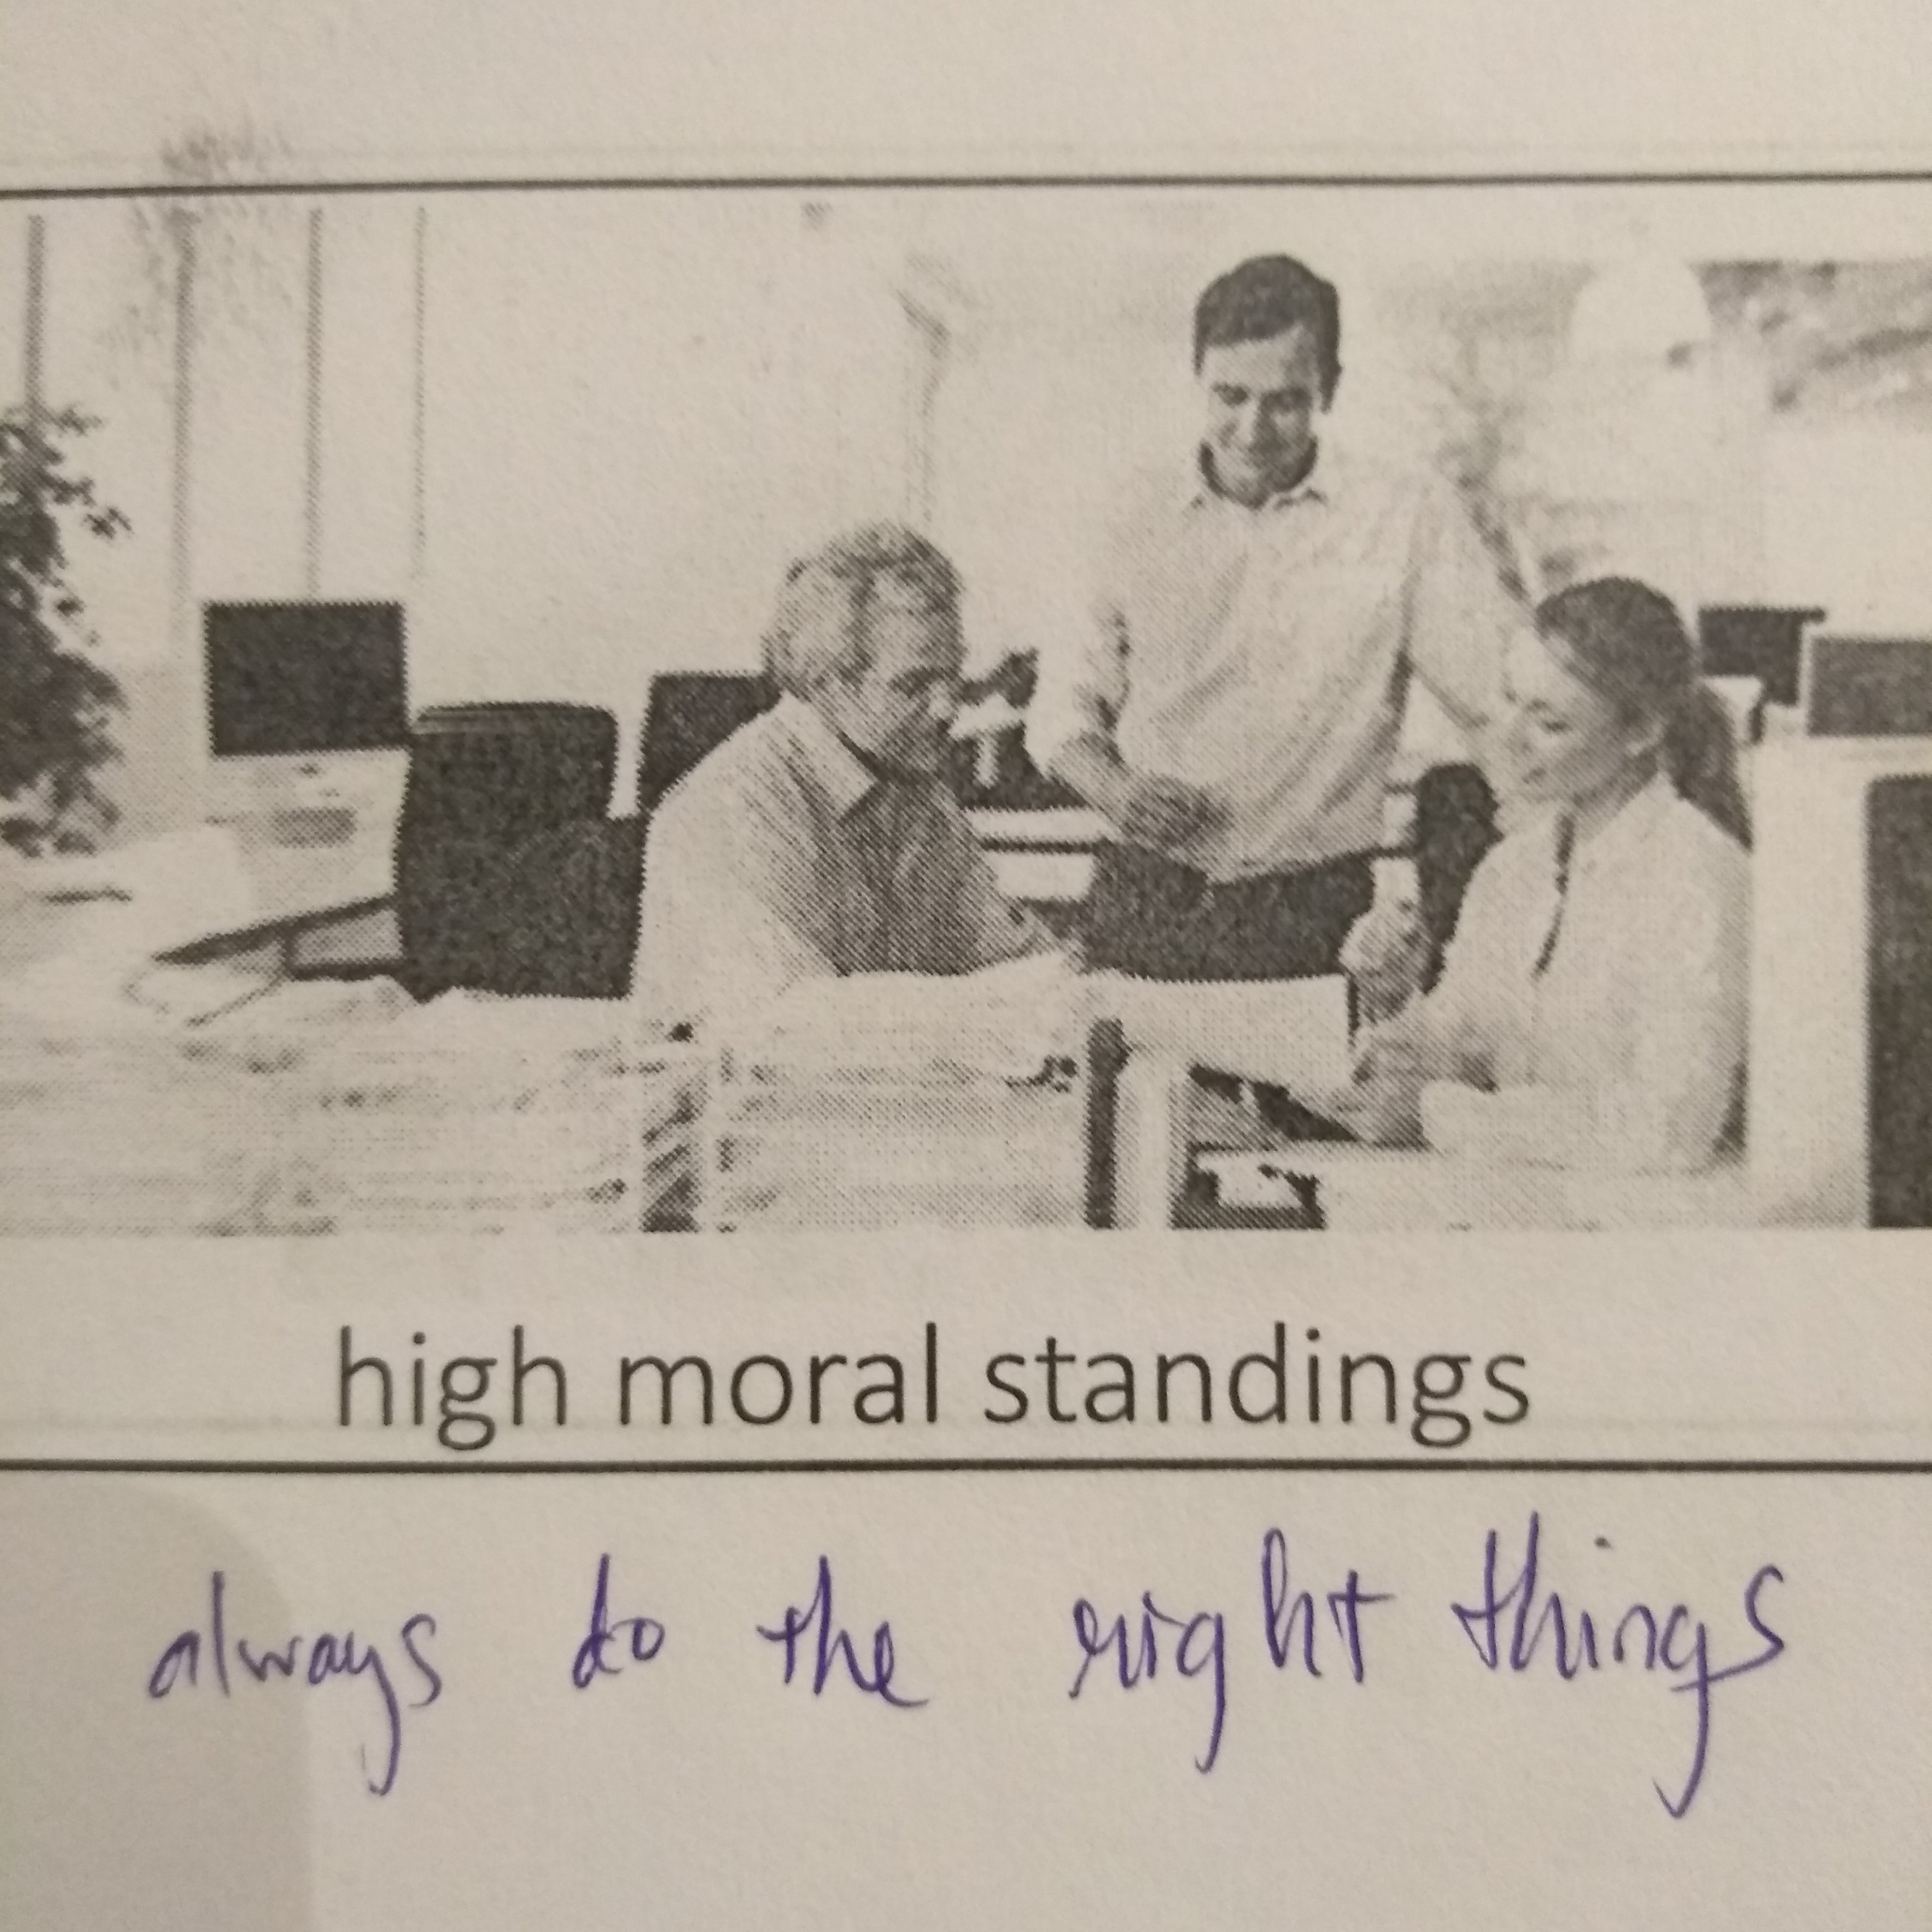 high moral standings
always do the right things